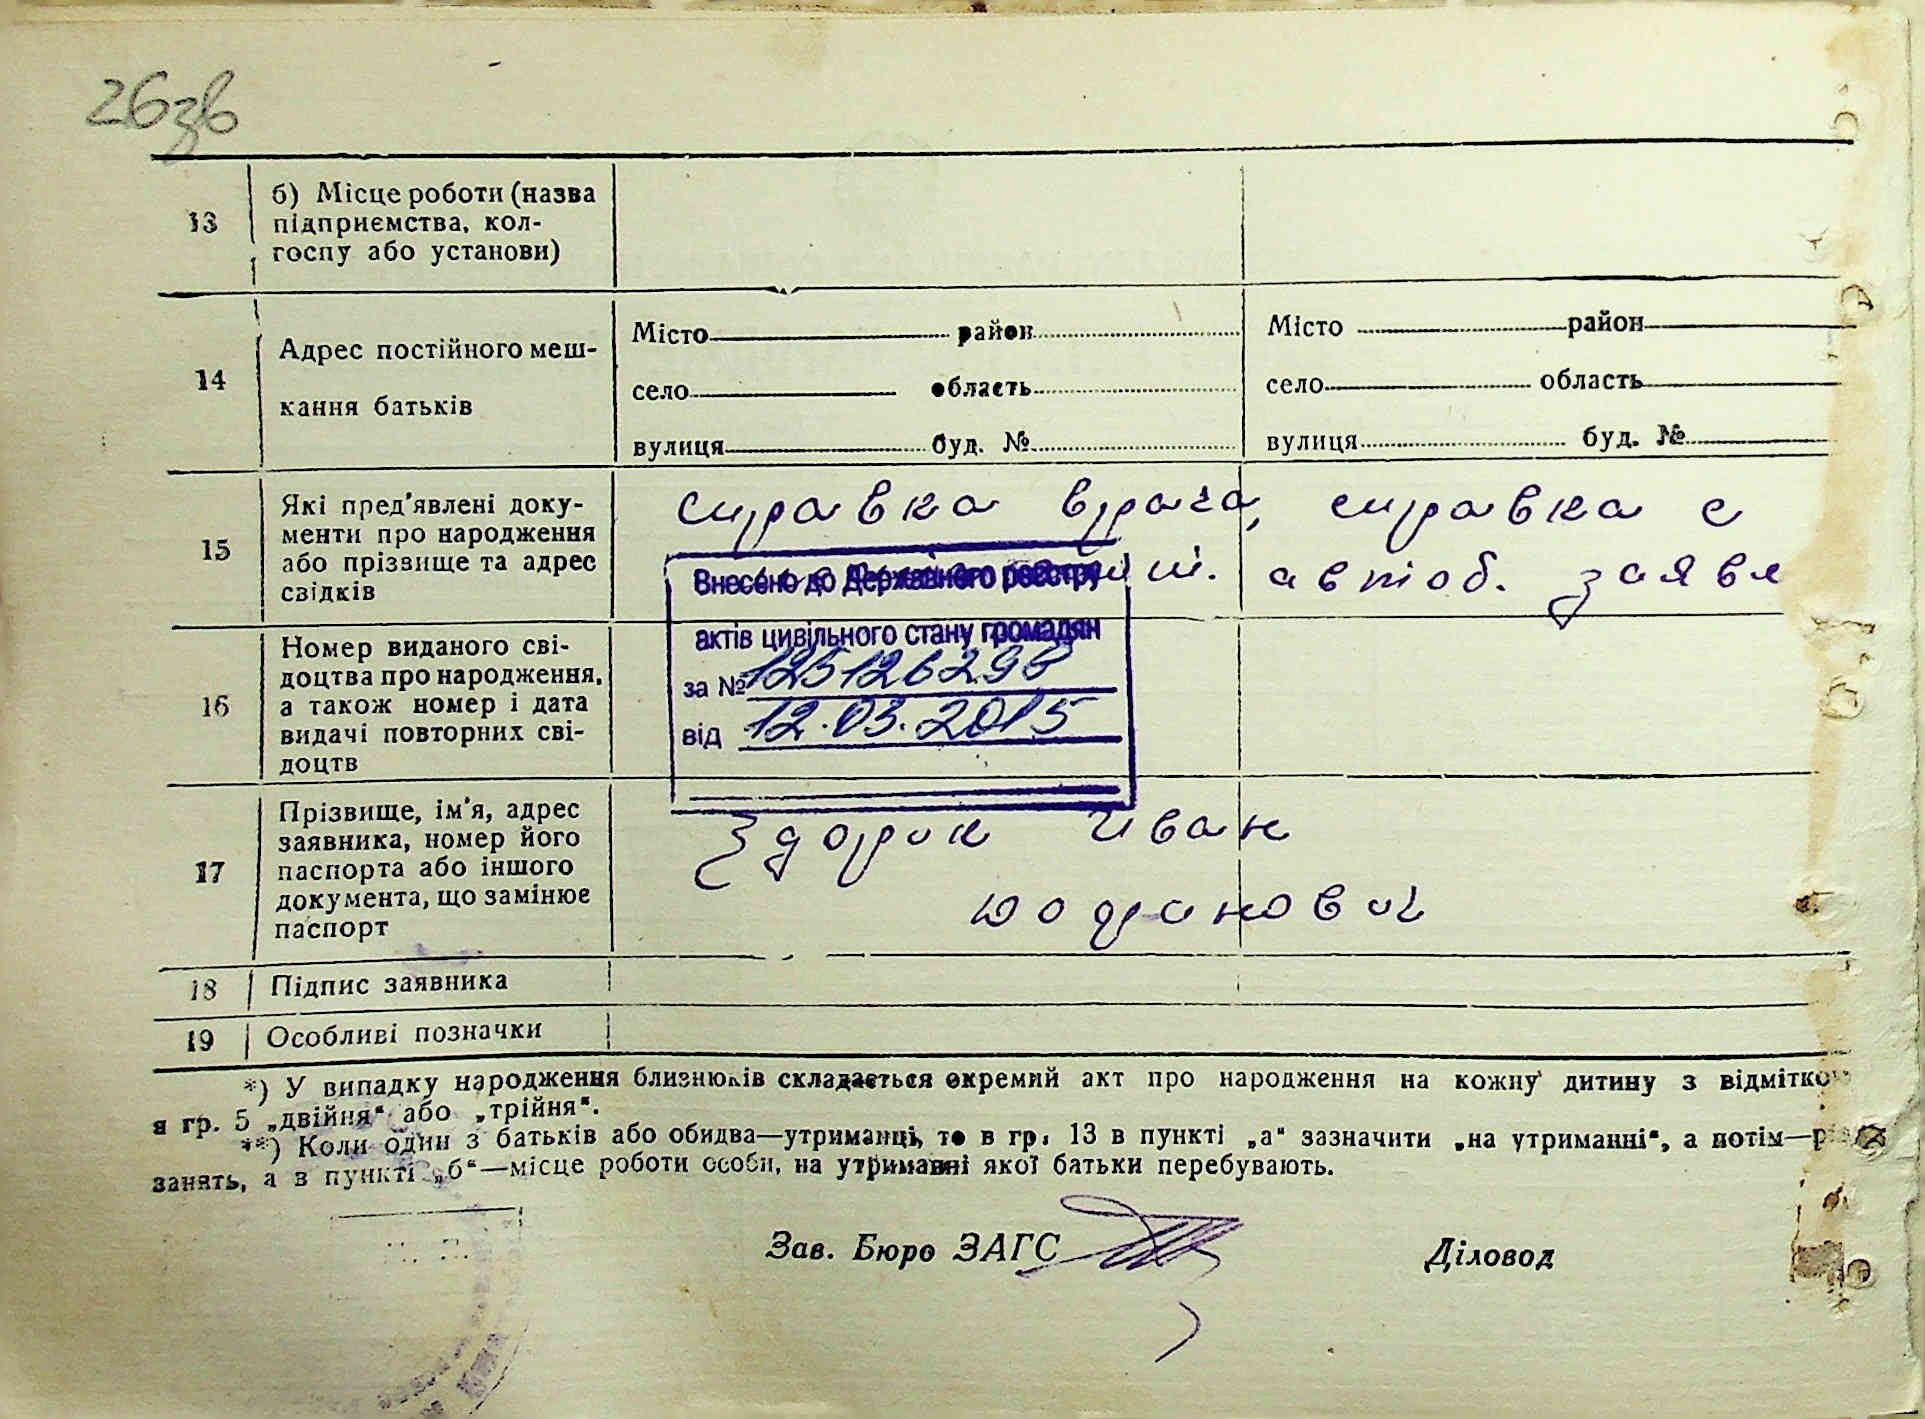 26зв
13
б) Місце роботи (назва
підприємства, кол-
госпу або установи)
14
Адрес постійного меш-
кання батьків
Місто район
село область
вулиця буд. №
Місто район
село область
вулиця буд. №
15
Які пред'явлені доку-
менти про народження
або прізвище та адрес
свідків
справка врача, справка с
ш. автоб. заявл
Внесено до Державного реєстру
актів цивільного стану громадян
за № 125126298
від 12.03.2015
16
Номер виданого сві-
доцтва про народження,
а також номер і дата
видачі повторних сві-
доцтв
17
Прізвище, ім'я, адрес
заявника, номер його
паспорта або іншого
документа, що замінює
паспорт
Здорик Иван
18
Підпис заявника
19
Особливі позначки
*) У випадку народження близнюків складається окремий акт про народження на кожну дитину з відміткою
в гр. 5 „двійня“ або „трійня“.
**) Коли один з батьків або обидва—утриманці, то в гр. 13 в пункті „а“ зазначити „на утриманні“, а потім—
занять, а в пункті „б“—місце роботи особи, на утриманні якої батьки перебувають.
Зав. Бюро ЗАГС
Діловод